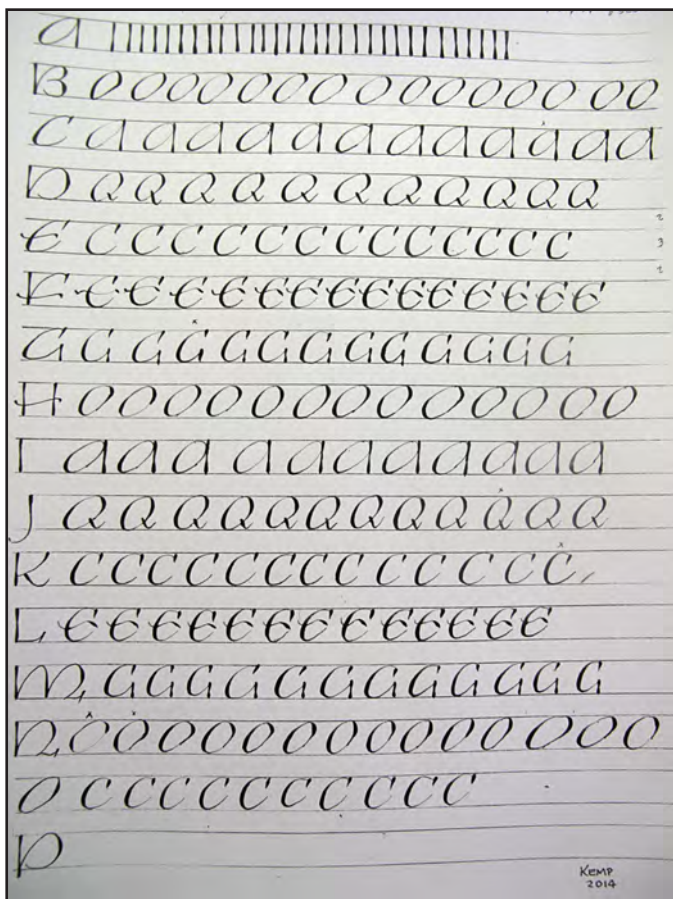 A ||||||||||||||||||||||||||||||
B O O O O O O O O O O O O O O O O O
C A A A A A A A A A A A A A
D Q Q Q Q Q Q Q Q Q Q Q Q
E C C C C C C C C C C C C C C
F E E E E E E E E E E E E E E
G G G G G G G G G G G G G
H O O O O O O O O O O O O O O
I A A A A A A A A A A A A
J Q Q Q Q Q Q Q Q Q Q Q Q Q
K C C C C C C C C C C C C C
L E E E E E E E E E E E E E
M G G G G G G G G G G G G G
N O O O O O O O O O O O O O O O
O C C C C C C C C C C
P
KEMP
2014